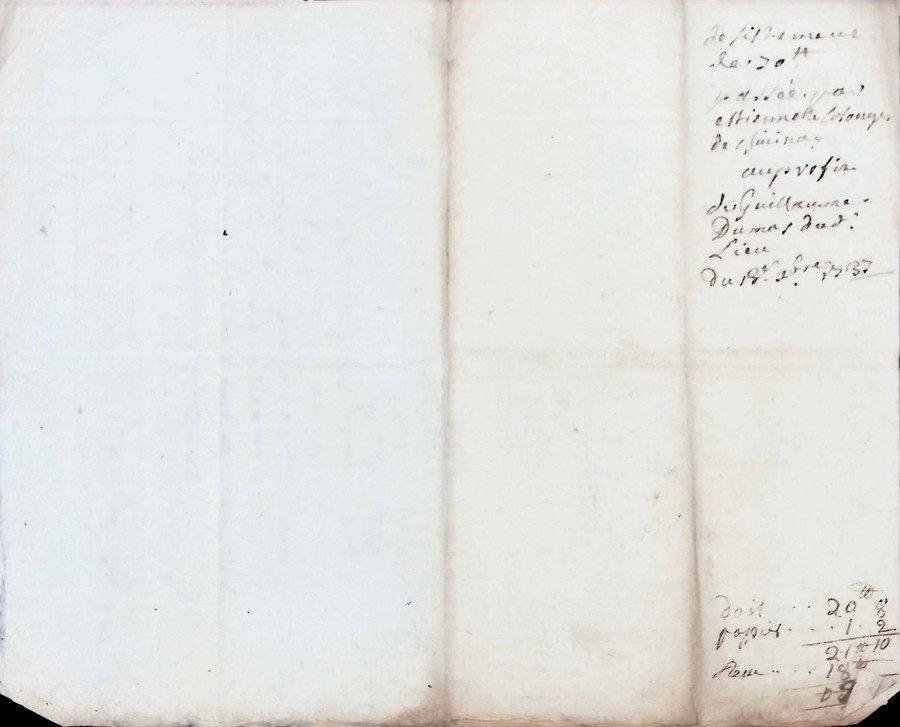 desistement
de 70 ₶
passée par
estiennette Colonges
de
au profit
de Guillaume
Dumas dud.
Lieu
du 18e. 9bre 1737
doit . . . 20 ₶ 8
papier . . . 1 . 2
21 ₶ 10
. . . 18 ₶